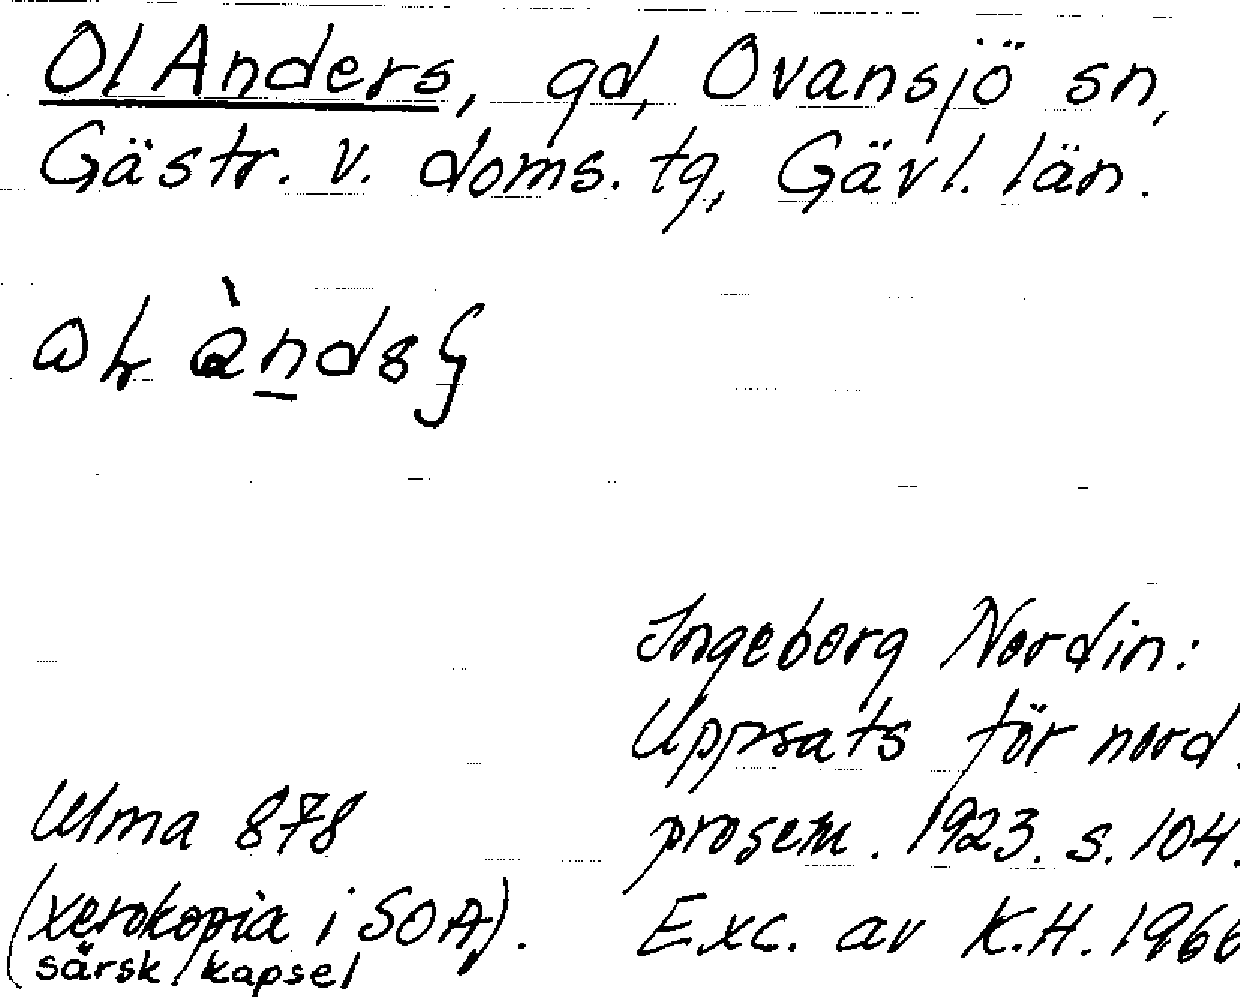 Ol Anders, gd, Ovansjö sn,
Gästr. v. doms. tg, Gävl. län.
Ingeborg Nordin:
Uppsats för nord.
prosem. 1923. s. 104.
Exc. av K.H. 1966
Ulma 878
(xerokopia i SOA).
särsk kapsel